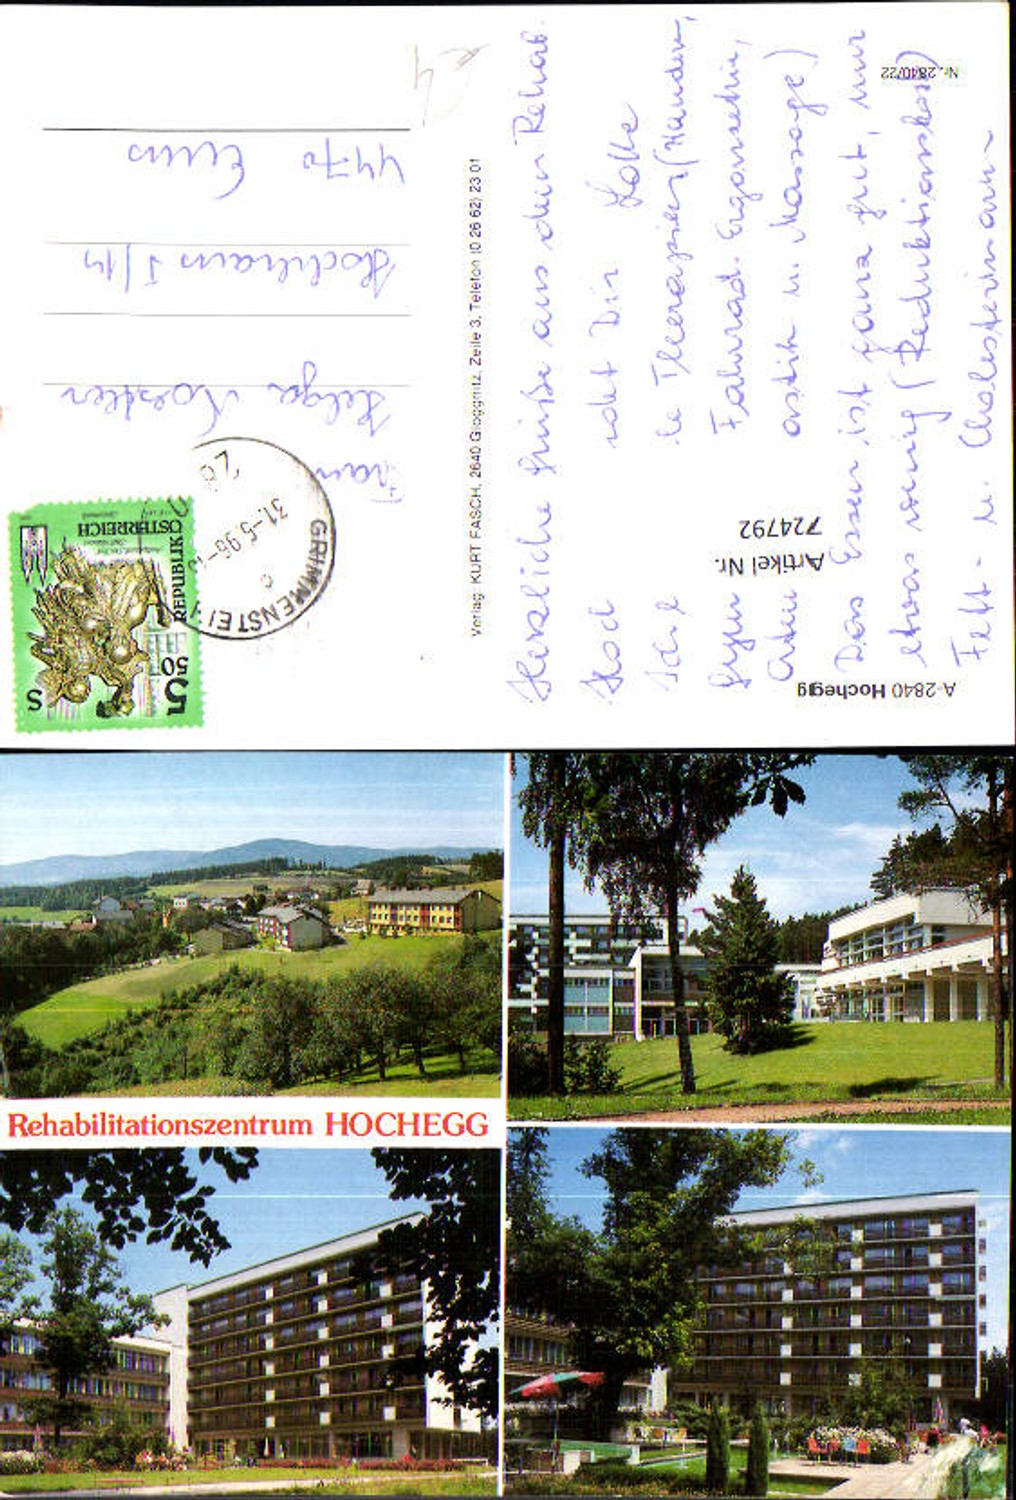 Herzliche Grüße aus dem Rehab.
Hoch
det Dir Lotte
le Therapien (Wandern,
Gym
Fahrrad. Ergometrie,
astik u. Massage)
Das Essen ist ganz gut, nur
etwas wenig (Reduktionskost)
Fett- u. Cholesterinarm
Frau
Helga
Hochhaus 1/14
4470 Enns
REPUBLIK ÖSTERREICH
S 5 50
GRIMMENSTEIN
31.-5.96-
28
Verlag: KURT FASCH, 2640 Gloggnitz, Zeile 3, Telefon (0 26 62) 23 01
Artikel Nr.
724792
A-2840 Hochegg
Nr. 2840/22
Rehabilitationszentrum HOCHEGG